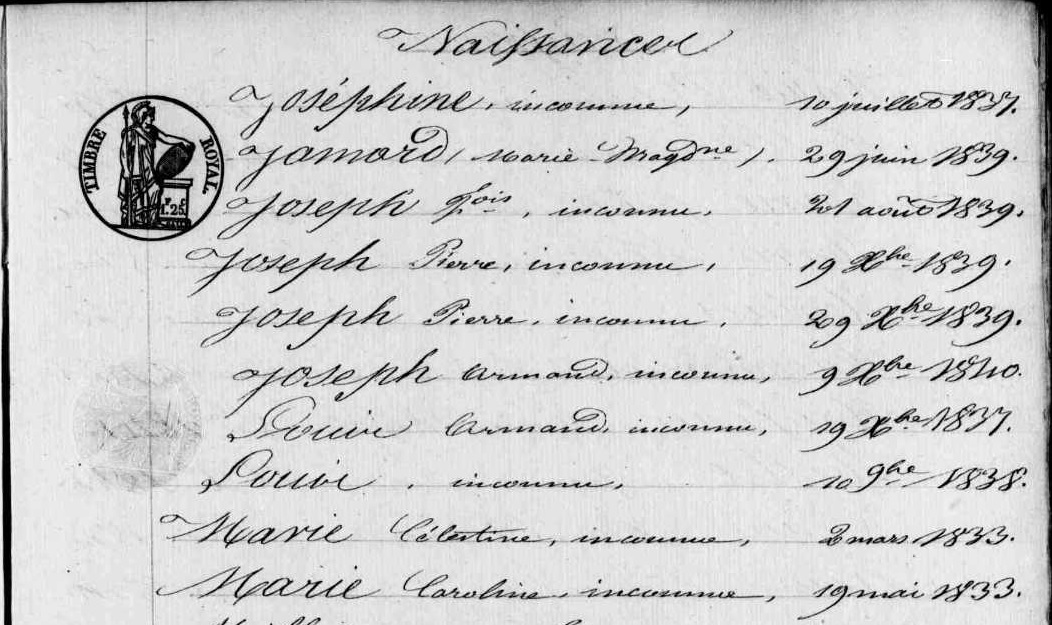 Naissances
Joséphine, inconnue, 10 juillet 1837.
TIMBRE ROYAL
Jamord (Marie Magdne). 29 juin 1839.
1F. 25C
Joseph fois, inconnu. 21 août 1839.
Joseph Pierre, inconnu, 19 Xbre 1839.
Joseph Pierre, inconnu, 29 Xbre 1839.
Joseph Armand, inconnu, 9 Xbre 1840.
Louise Armand, inconnu, 19 Xbre 1837.
Louise, inconnu, 10 9bre 1838.
Marie Célestine, inconnue, 2 mars 1833.
Marie Caroline, inconnue, 19 mai 1833.